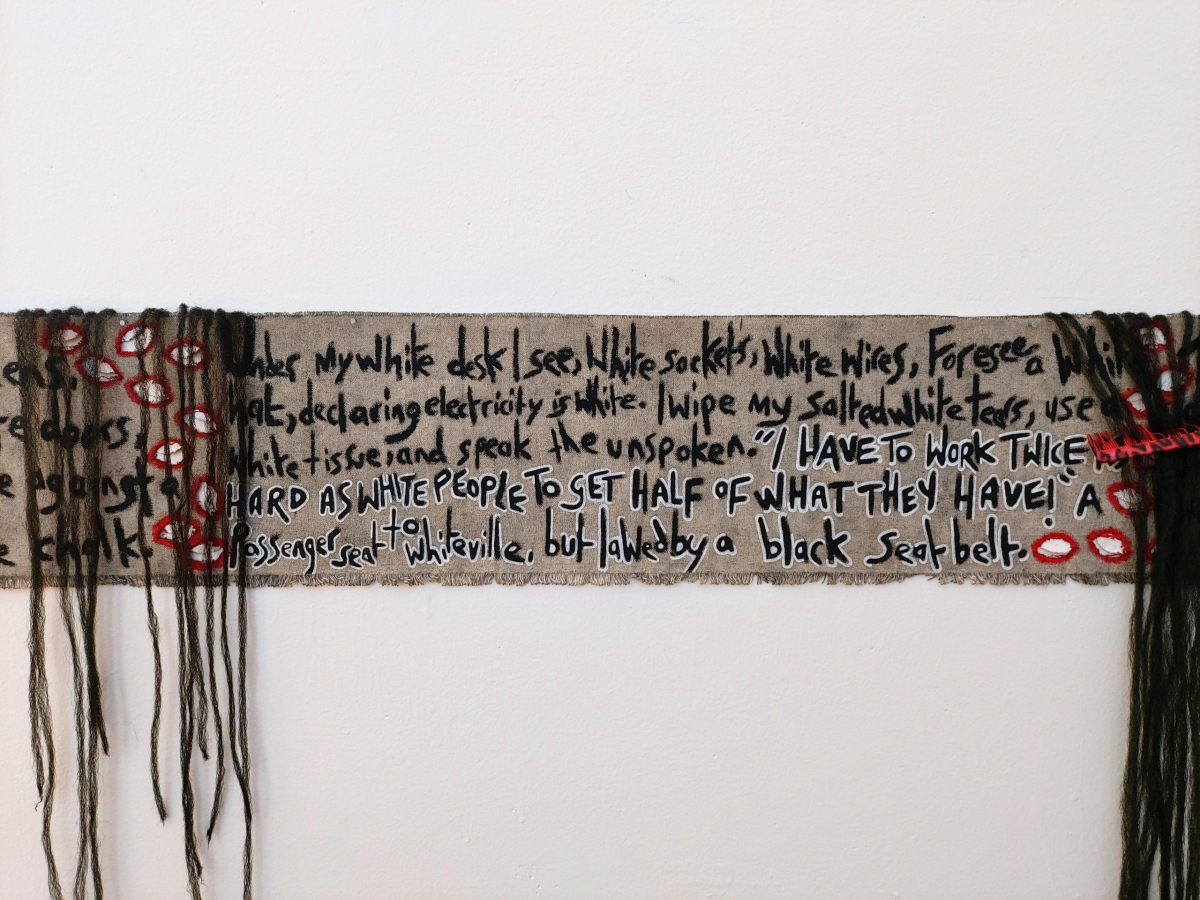 ens, Under My white desk I see, White sockets, White Wires, Foresee a Whit
re doors, hat, declaring electricity is white. I wipe my salted white tears, use a
e against a white tissue, and speak the unspoken. "I HAVE TO WORK TWICE AS
HARD AS WHITE PEOPLE TO GET HALF OF WHAT THEY HAVE!" A
e chalk. Passenger seat to Whiteville, but lawed by a black seatbelt.